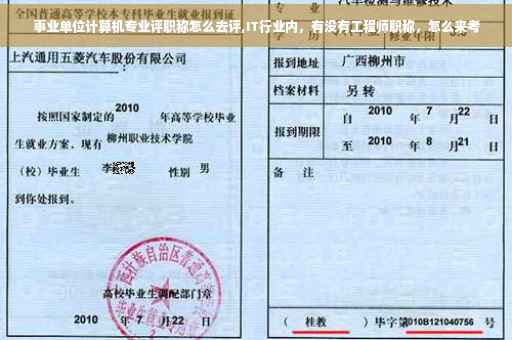 全国普通高等学校本专科毕业生就业报到证
事业单位计算机专业评职称怎么去评,IT行业内，有没有工程师职称，怎么来考
上汽通用五菱汽车股份有限公司
按照国家制定的 2010 年高等学校毕业
生就业方案，现有 柳州职业技术学院
（校）毕业生 李 性别 男
到你处报到。
高校毕业生调配部门章
2010 年 7 月 22 日
报到地址 广西柳州市
档案材料 另转
报到期限
自 2010 年 7 月 22 日
至 2010 年 8 月 21 日
备 注
（ 桂教 ） 毕字第 010B121040756 号